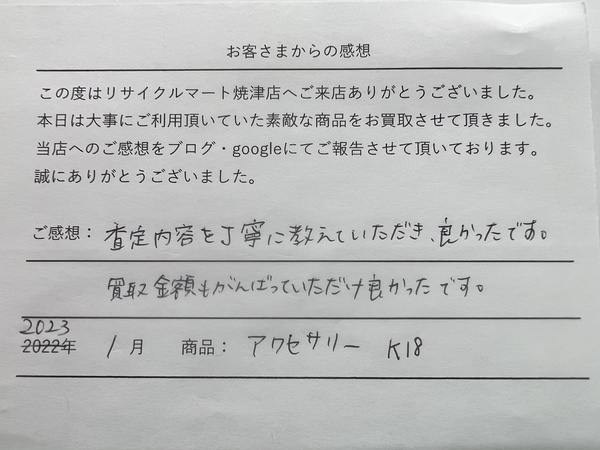 お客さまからの感想
この度はリサイクルマート焼津店へご来店ありがとうございました。
本日は大事にご利用頂いていた素敵な商品をお買取させて頂きました。
当店へのご感想をブログ・googleにてご報告させて頂いております。
誠にありがとうございました。
ご感想：査定内容を丁寧に教えていただき、良かったです。
買取金額もがんばっていただけ良かったです。
2023
2022年 1月 商品：アクセサリー K18